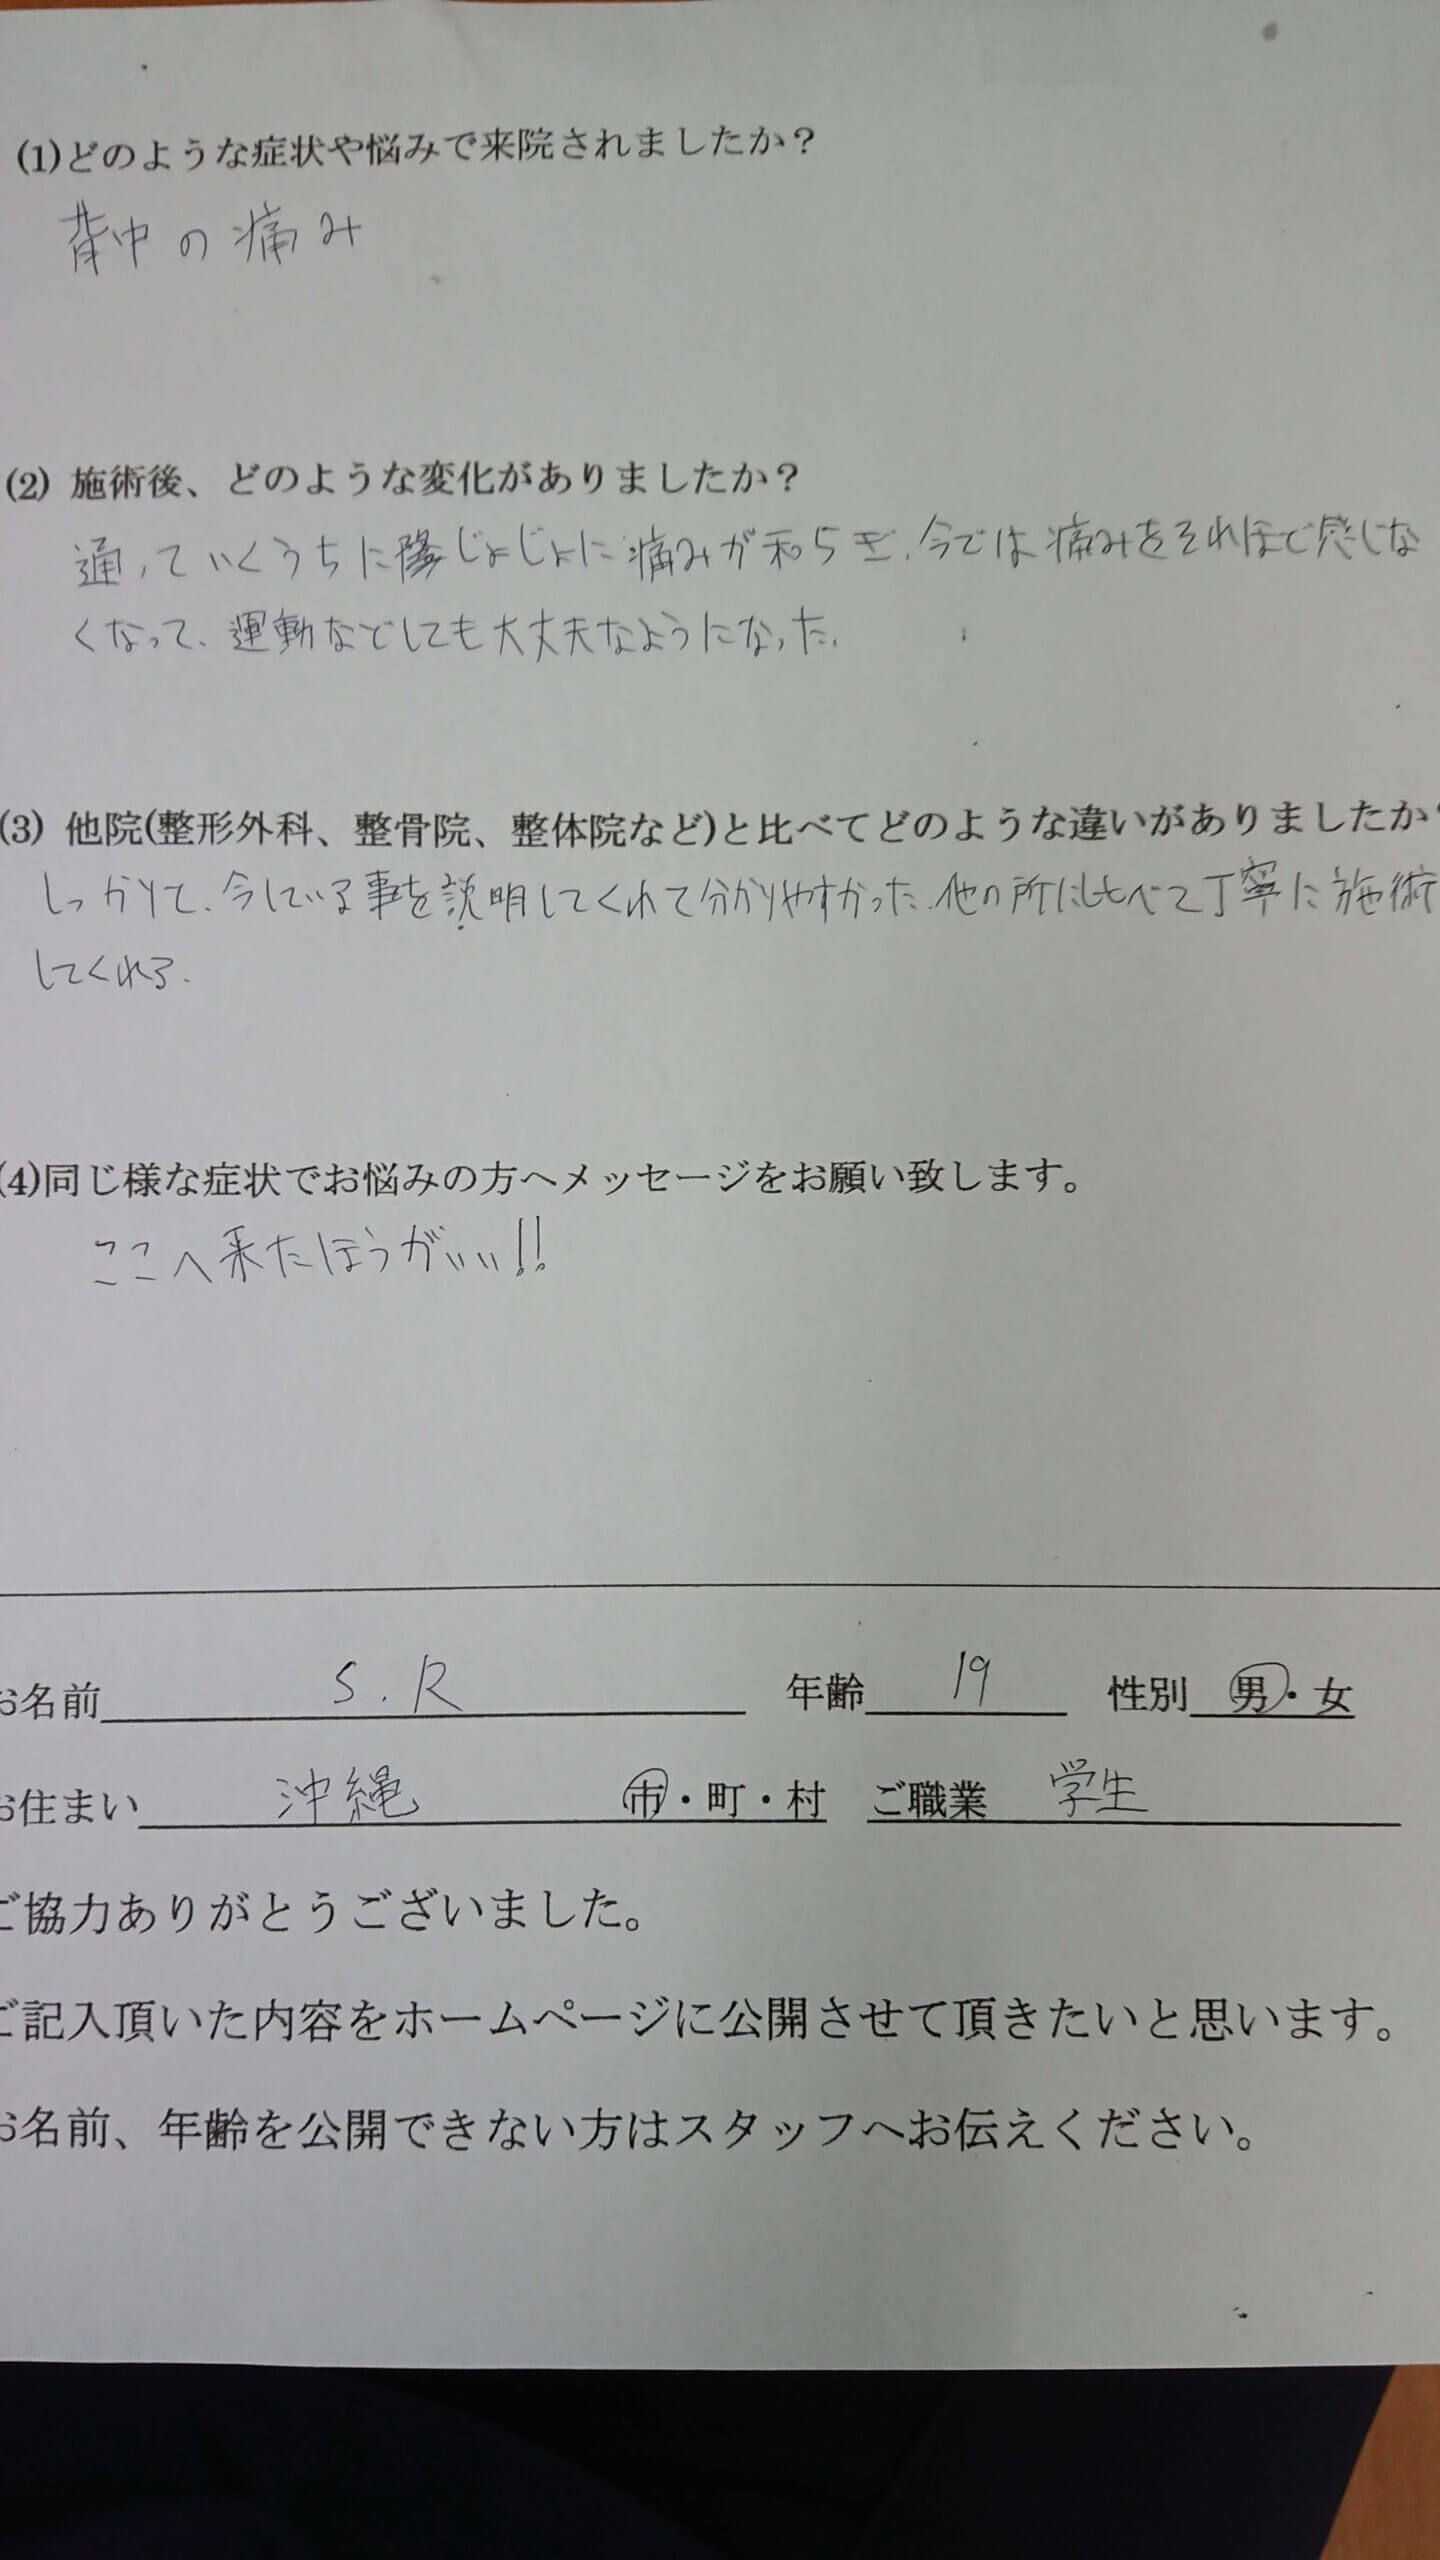 (1)どのような症状や悩みで来院されましたか?
背中の痛み
(2) 施術後、どのような変化がありましたか?
通っていくうちにじょじょに痛みが和らぎ、今では痛みをそれほど感じな
くなって、運動などしても大丈夫なようになった。
(3) 他院(整形外科、整骨院、整体院など)と比べてどのような違いがありましたか?
しっかりて、今している事を説明してくれて分かりやすかった。他の所に比べて丁寧に施術
してくれる。
(4)同じ様な症状でお悩みの方へメッセージをお願い致します。
ここへ来たほうがいい!!
お名前 S.R 年齢 19 性別 男・女
お住まい 沖縄 市・町・村 ご職業 学生
ご協力ありがとうございました。
ご記入頂いた内容をホームページに公開させて頂きたいと思います。
お名前、年齢を公開できない方はスタッフへお伝えください。